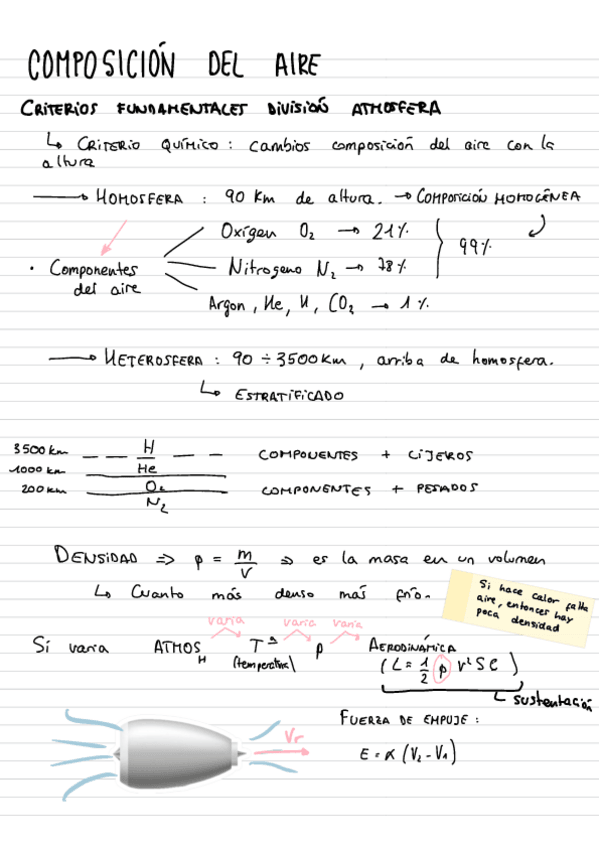 COMPOSICIÓN DEL AIRE
CRITERIOS FUNDAMENTALES DIVISIÓN ATMOSFERA
↳ CRITERIO QUÍMICO : cambios composición del aire con la
altura
→ HOMOSFERA : 90 Km de altura. → COMPOSICIÓN HOMOGÉNEA
Oxígen O₂ → 21%
99%
• Componentes
del aire
Nitrogeno N₂ → 78%
Argon, He, H, CO₂ → 1%
→ HETEROSFERA : 90 ÷ 3500 Km , arriba de homosfera.
↳ ESTRATIFICADO
3500 km — — H — — COMPONENTES + LIJEROS
1000 km He
200 km O₂ COMPONENTES + PESADOS
N₂
DENSIDAD ⇒ ρ = m/V ⇒ es la masa en un volumen
↳ Cuanto más denso más frío.
Si hace calor falta
aire, entonces hay
poca densidad
varia varia varia
Si varia ATMOS H Tª ρ AERODINÁMICA
(temperatura) (L = 1/2 ρ v² S C)
↳ sustentación
FUERZA DE EMPUJE :
Vr
E = K (V₂ - V₁)